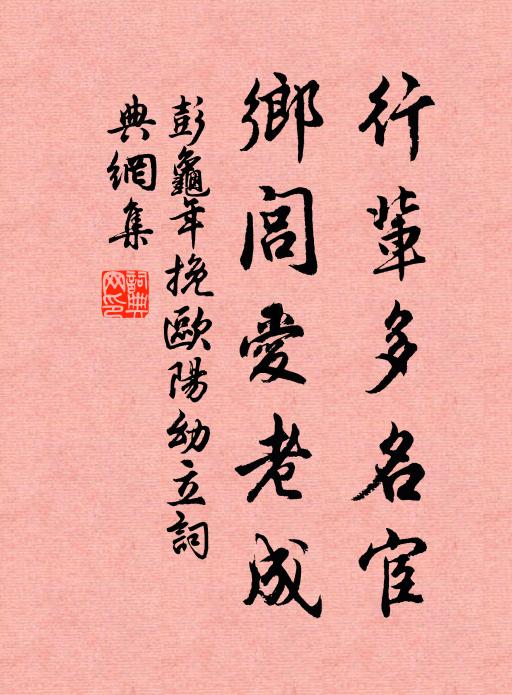 行輩多名宦
鄉閭愛老成
彭龜年挽歐陽幼立詞
典網集
詞典网印